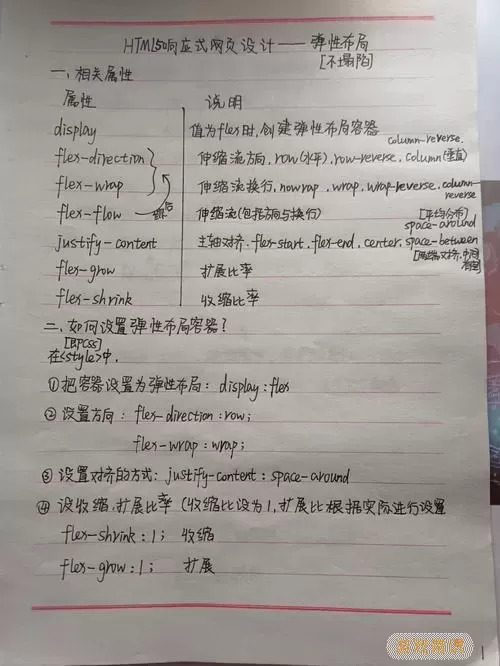 HTML5响应式网页设计——弹性布局
[不塌陷]
一、相关属性
属性 说明
display 值为flex时,创建弹性布局容器
column-reverse.
flex-direction 伸缩流方向,row(水平),row-reverse,column(垂直)
flex-wrap 伸缩流换行,nowrap,wrap,wrap-reverse,column-reverse
flex-flow 伸缩流(包括方向与换行)
[平均分布]
space-around
justify-content 主轴对齐,flex-start,flex-end,center,space-between
[两端对齐,中间有空]
flex-grow 扩展比率
flex-shrink 收缩比率
二、如何设置弹性布局容器?
[即css]
在<style>中,
①把容器设置为弹性布局: display:flex
②设置方向: flex-direction:row;
flex-wrap:wrap;
③设置对齐的方式: justify-content:space-around
④设收缩,扩展比率 (收缩比设为1,扩展比根据实际进行设置
flex-shrink:1; 收缩
flex-grow:1; 扩展